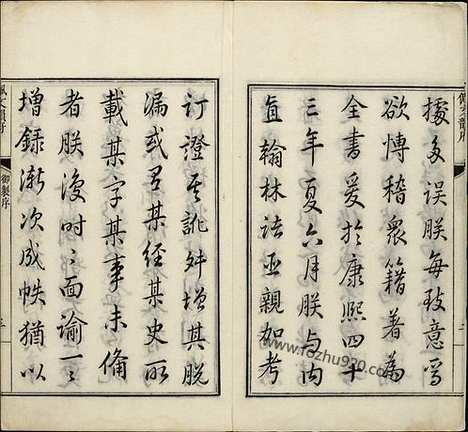 據多誤朕每致意焉
欲博稽眾籍著為
全書爰於康熙四十
三年夏六月朕與內
直翰林諸臣親加考
訂證其訛舛增其脫
漏或有某經某史所
載某字某事未俻
者朕復時〻面諭一〻
增錄漸次成帙猶以
御製序
www.fozhu920.com